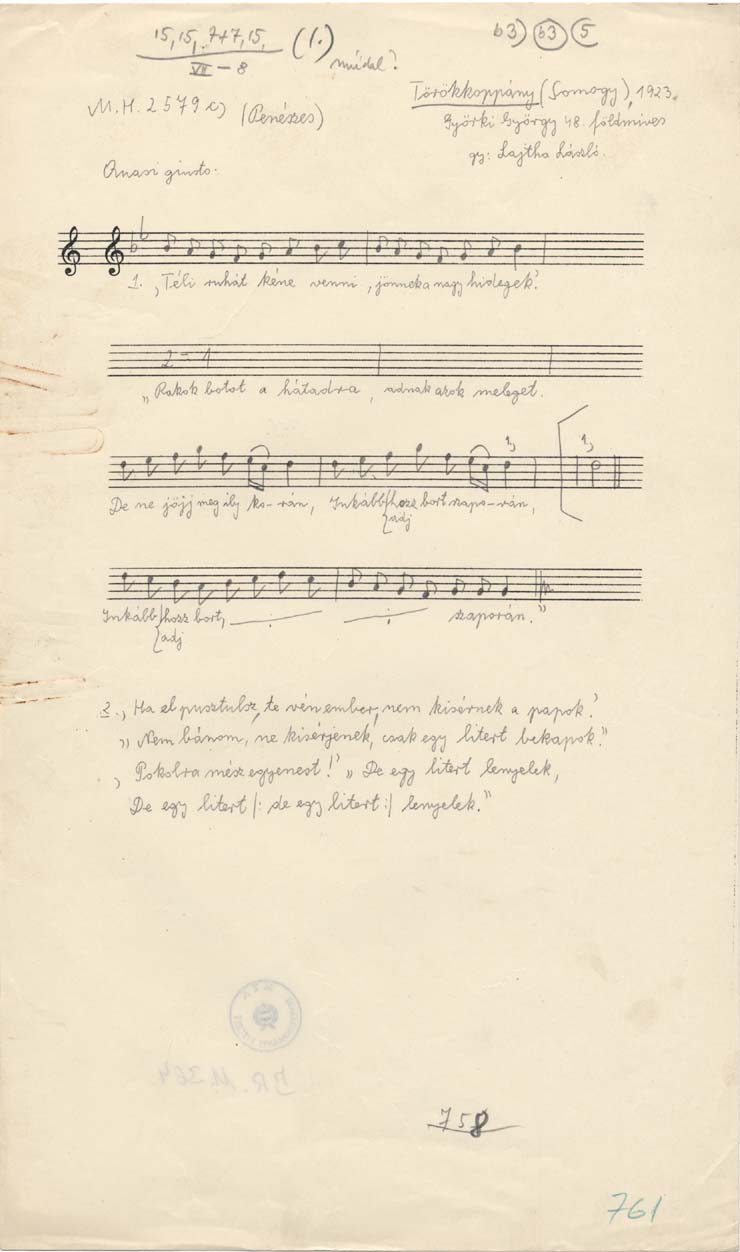 15, 15, 7+7, 15. (1.) b3) b3 5
VII – 8 műdal?
Törökkoppány (Somogy), 1923.
M.H. 2579 c) (Penészes)
Györki György 48. földmives
gy: Lajtha László.
Quasi giusto.
1. „Téli ruhát kéne venni, jönnek a nagy hidegek.”
2 = 1
„Rakok botot a hátadra, adnak azok meleget.
De ne jöjj meg ily ko-rán, Inkább hozz bort szapo-rán,
adj
Inkább hozz bort, szaporán.”
adj
2. „Ha elpusztulsz, te vén ember, nem kisérnek a papok.”
„Nem bánom, ne kisérjenek, csak egy litert bekapok.”
„Pokolra mész egyenest!” „De egy litert lenyelek,
De egy litert |: de egy litert :| lenyelek.”
BR. M 364
758
761